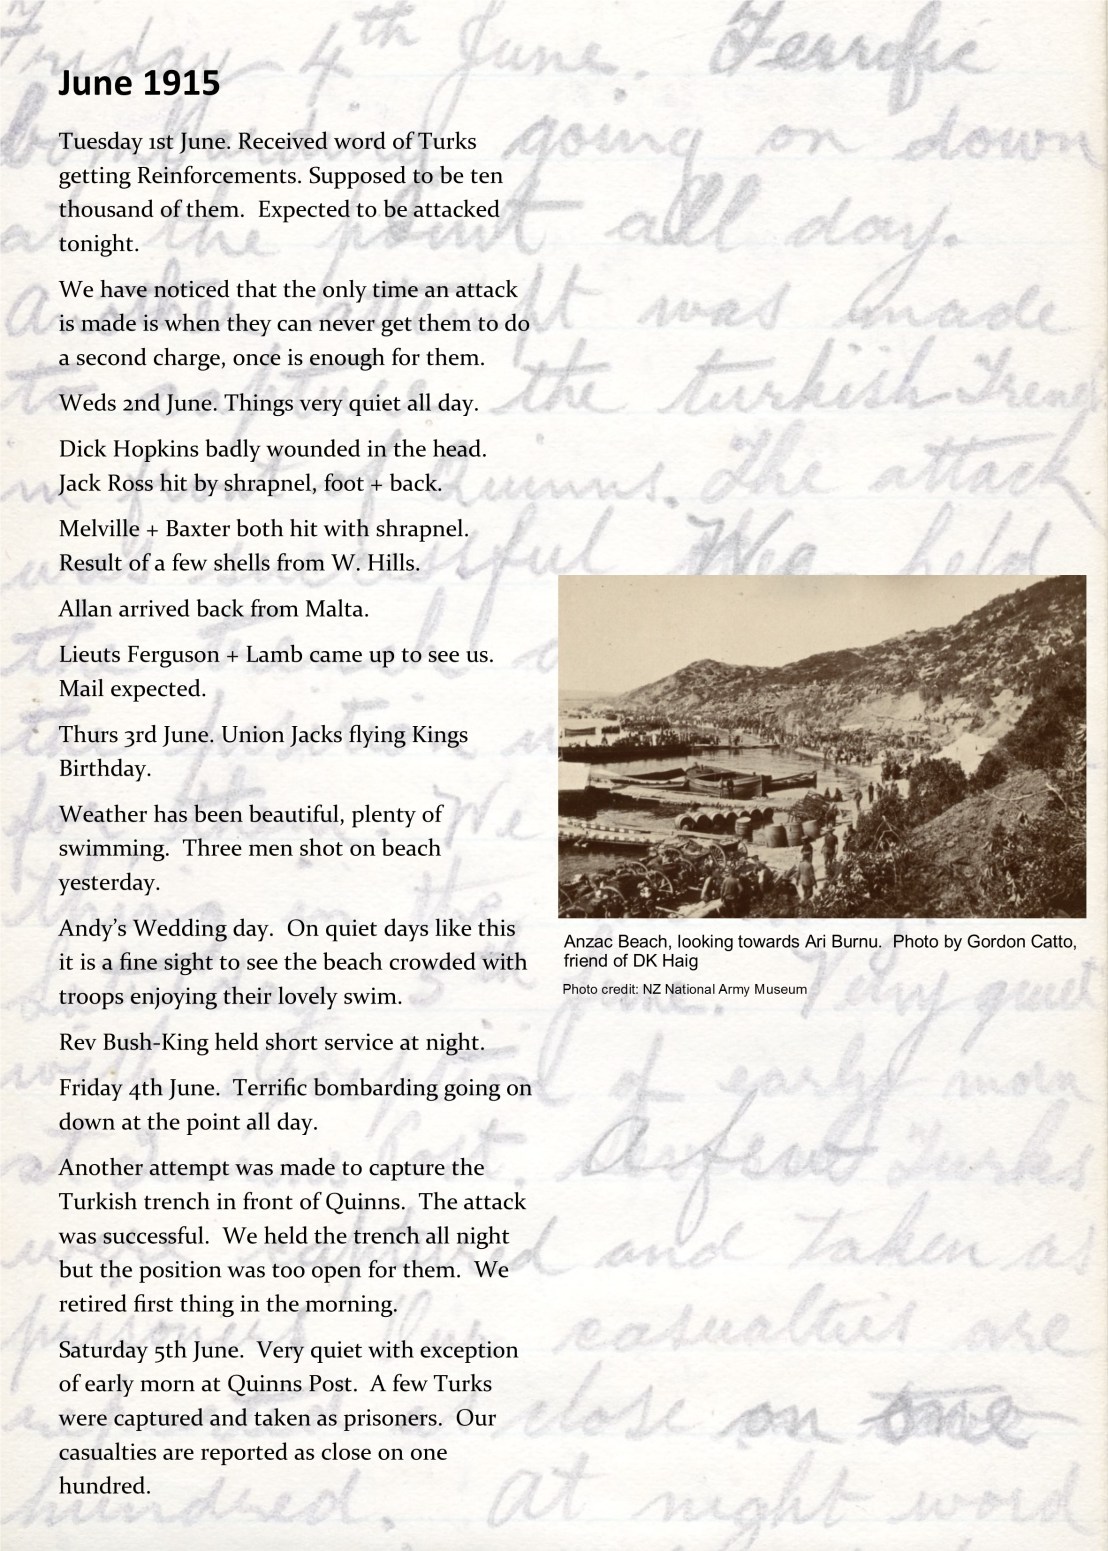 June 1915
Tuesday 1st June. Received word of Turks
getting Reinforcements. Supposed to be ten
thousand of them.  Expected to be attacked
tonight.
We have noticed that the only time an attack
is made is when they can never get them to do
a second charge, once is enough for them.
Weds 2nd June. Things very quiet all day.
Dick Hopkins badly wounded in the head.
Jack Ross hit by shrapnel, foot + back.
Melville + Baxter both hit with shrapnel.
Result of a few shells from W. Hills.
Allan arrived back from Malta.
Lieuts Ferguson + Lamb came up to see us.
Mail expected.
Thurs 3rd June. Union Jacks flying Kings
Birthday.
Weather has been beautiful, plenty of
swimming.  Three men shot on beach
yesterday.
Andy’s Wedding day.  On quiet days like this
it is a fine sight to see the beach crowded with
troops enjoying their lovely swim.
Rev Bush-King held short service at night.
Friday 4th June.  Terrific bombarding going on
down at the point all day.
Another attempt was made to capture the
Turkish trench in front of Quinns.  The attack
was successful.  We held the trench all night
but the position was too open for them.  We
retired first thing in the morning.
Saturday 5th June.  Very quiet with exception
of early morn at Quinns Post.  A few Turks
were captured and taken as prisoners.  Our
casualties are reported as close on one
hundred.
Anzac Beach, looking towards Ari Burnu.  Photo by Gordon Catto,
friend of DK Haig
Photo credit: NZ National Army Museum
Friday 4th June. Terrific
bombarding going on down
at the point all day.
Another attempt was made
to capture the turkish Trench
in front of Quinns. The attack
was successful We held
the trench
the position
for them. We
thing in the
Saturday 5th June. Very quiet
with exception of early morn
at Quinns Post. A few Turks
were captured and taken as
prisoners Our casualties are
reported as close on one
hundred. At night word